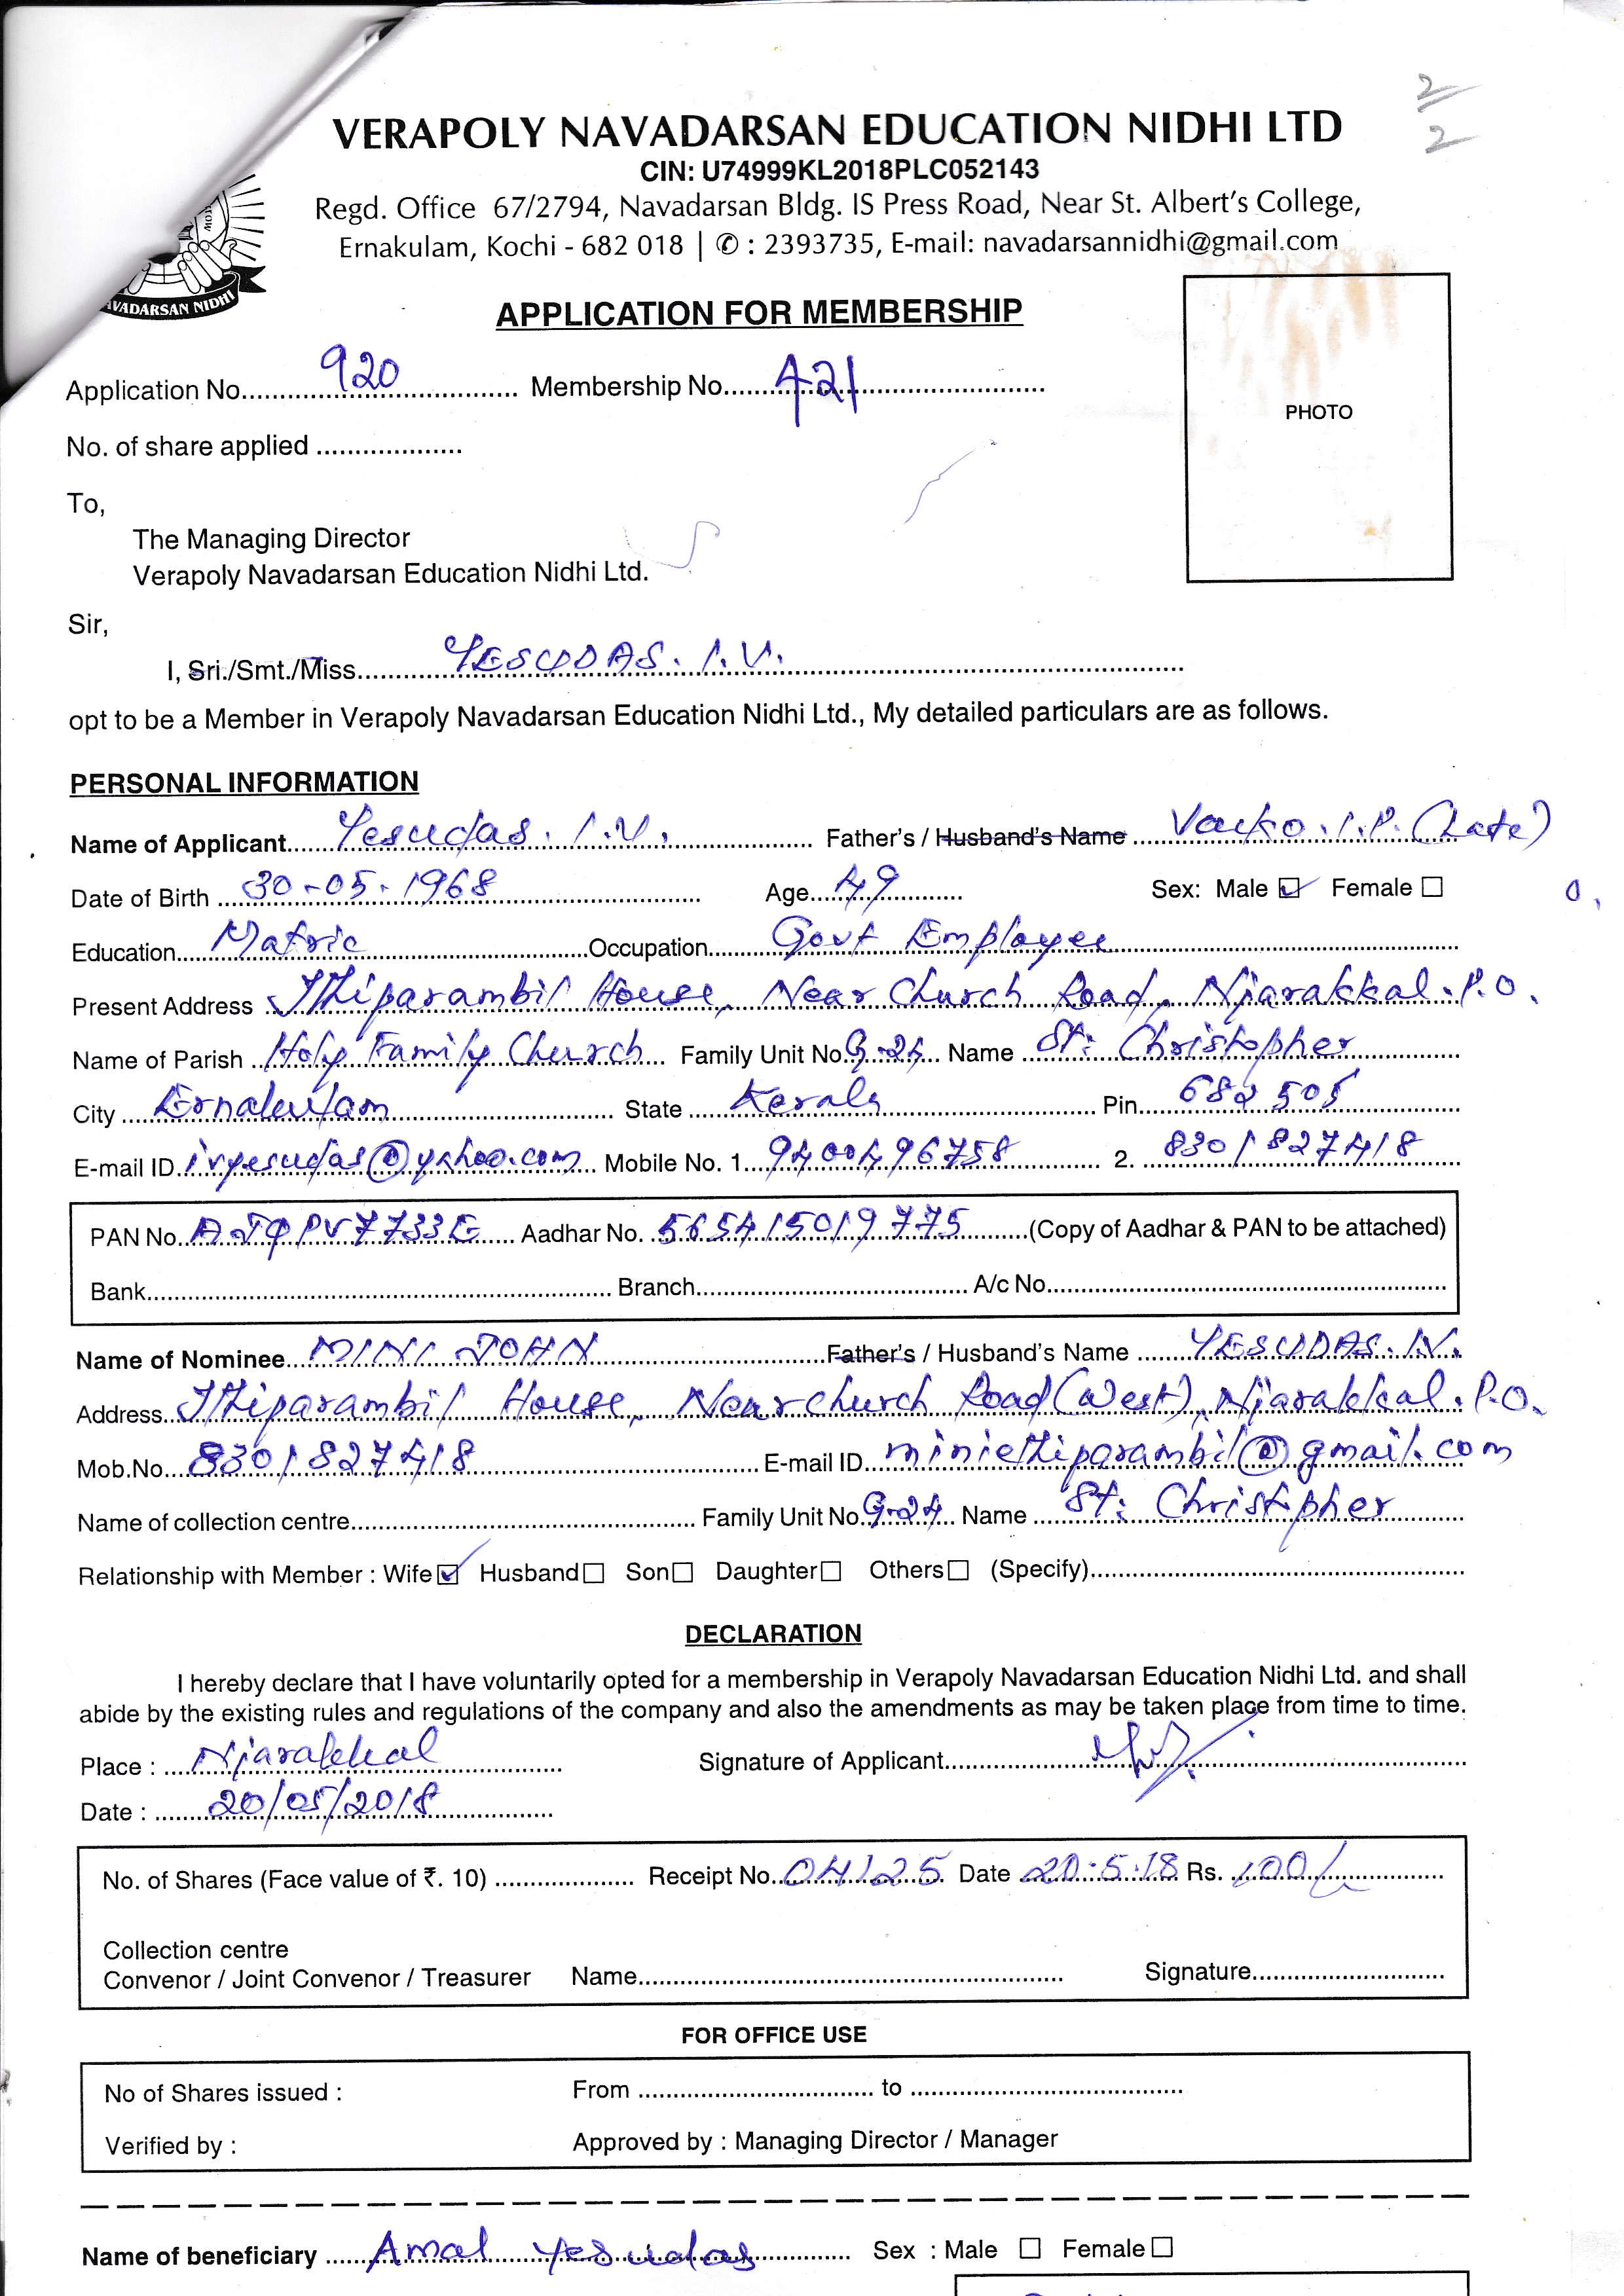 2/2
VERAPOLY NAVADARSAN EDUCATION NIDHI LTD
CIN: U74999KL2018PLC052143
Regd. Office 67/2794, Navadarsan Bldg. IS Press Road, Near St. Albert's College,
Ernakulam, Kochi - 682 018 | ✆ : 2393735, E-mail: navadarsannidhi@gmail.com
VADARSAN NIDHI
APPLICATION FOR MEMBERSHIP
Application No. 920 Membership No. 421
PHOTO
No. of share applied
To,
The Managing Director
Verapoly Navadarsan Education Nidhi Ltd.
Sir,
I, Sri./Smt./Miss. YESUDAS. I.V.
opt to be a Member in Verapoly Navadarsan Education Nidhi Ltd., My detailed particulars are as follows.
PERSONAL INFORMATION
Name of Applicant Yesudas. I.V. Father's / Husband's Name I.P. (Late)
Date of Birth 30-05-1968 Age 49 Sex: Male ☑ Female ☐
Education Matric Occupation Govt Employee
Present Address Ithiparambil House, Near Church Road, Njarakkal. P.O.
Name of Parish Holy Family Church Family Unit No. G-24 Name St: Christopher
City Ernakulam State Kerala Pin 682 505
E-mail ID. ivyesudas@yahoo.com Mobile No. 1. 9400496758 2. 8301827418
PAN No. AJQPV7733E Aadhar No. 565415019775 (Copy of Aadhar & PAN to be attached)
Bank Branch A/c No.
Name of Nominee MINI JOHN Father's / Husband's Name YESUDAS. I.V.
Address Ithiparambil House, Near church Road (West), Njarakkal. P.O.
Mob.No. 8301827418 E-mail ID. miniethiparambil@gmail.com
Name of collection centre Family Unit No. G-24 Name St: Christipher
Relationship with Member : Wife ☑ Husband ☐ Son ☐ Daughter ☐ Others ☐ (Specify)
DECLARATION
I hereby declare that I have voluntarily opted for a membership in Verapoly Navadarsan Education Nidhi Ltd. and shall
abide by the existing rules and regulations of the company and also the amendments as may be taken place from time to time.
Place : Njarakkal Signature of Applicant
Date : 20/05/2018
No. of Shares (Face value of ₹. 10) Receipt No. 04125 Date 20.5.18 Rs. 100/-
Collection centre
Convenor / Joint Convenor / Treasurer Name Signature
FOR OFFICE USE
No of Shares issued : From to
Verified by : Approved by : Managing Director / Manager
Name of beneficiary Amal Yesudas Sex : Male ☐ Female ☐